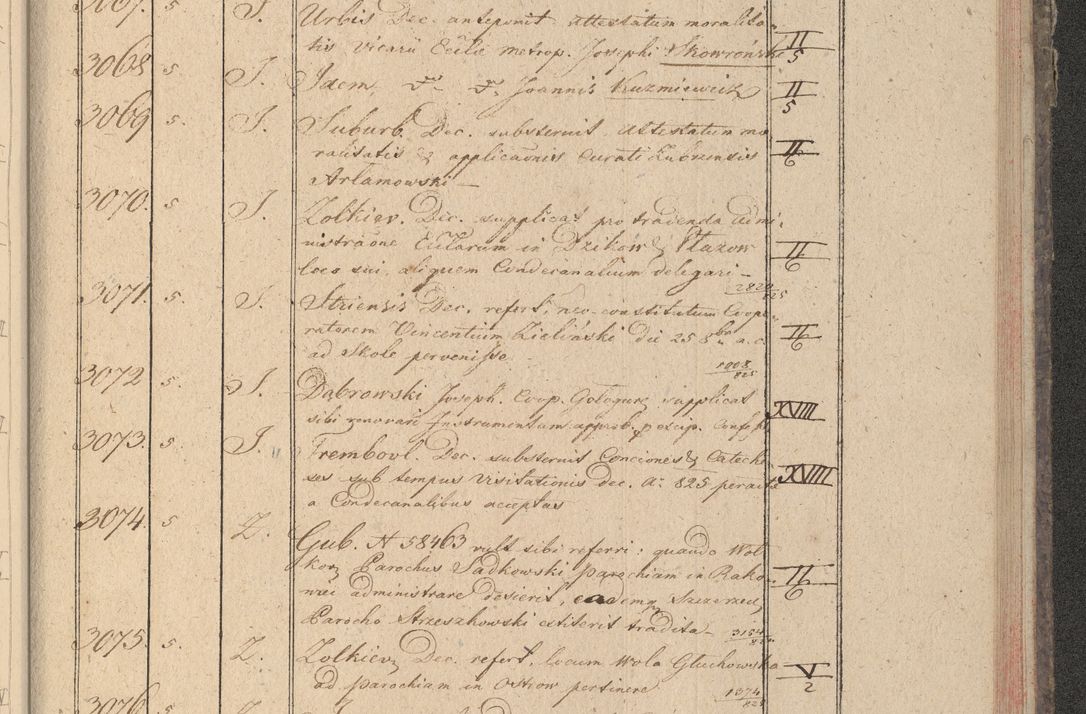 3067. 5 J. Urbis Dec. anteponit attestatum moralita-
tis vicarii Eccliæ metrop. Josephi Skowroński II/5
3068 5 J. Idem Joannis Kuzmiewicz II/5
3069 5. J. Suburb. Dec. substernit attestatum mo
ralitatis & applicaonis Curati Zubrzensis II/6
Artamowski —
3070. 5. J. Zolkiev. Dec. supplicat pro tradenda admi-
nistraone Ecclarum in Dzikow & Płazow II/6
loco sui aliquem Condecanalium delegari —
2820/825
3071. 5. J. Striensis Dec. refert, neo-constitutum Coope-
ratorem Vincentium Zieliński die 25 8bris a. c. II/6
ad Skole pervenisse.
1908/825
3072 5. J. Dąbrowski Joseph. Coop. Gologure supplicat XVIII
sibi renovari Instrumentum approb. p excip. Confess
3073. 5. J. Trembovl. Dec. substernit Conciones & Cateche
ses sub tempus visitationis dec. Aº 825 peractæ XVIIII
a Condecanalibus acceptas
3074. 5 Z. Gub. N 58463 vult sibi referri: quando Wol
kow Parochus Sadkowski parochiam in Rako- II/6
wiec administrare desierit, eademq Szczerzec
Parocho Strzeszkowski extiterit tradita —
3075. 5. Z. Zolkiev Dec. refert, locum Wola Gluchowska V/2
ad parochiam in Ostrow pertinere
1374/825
3076 5.